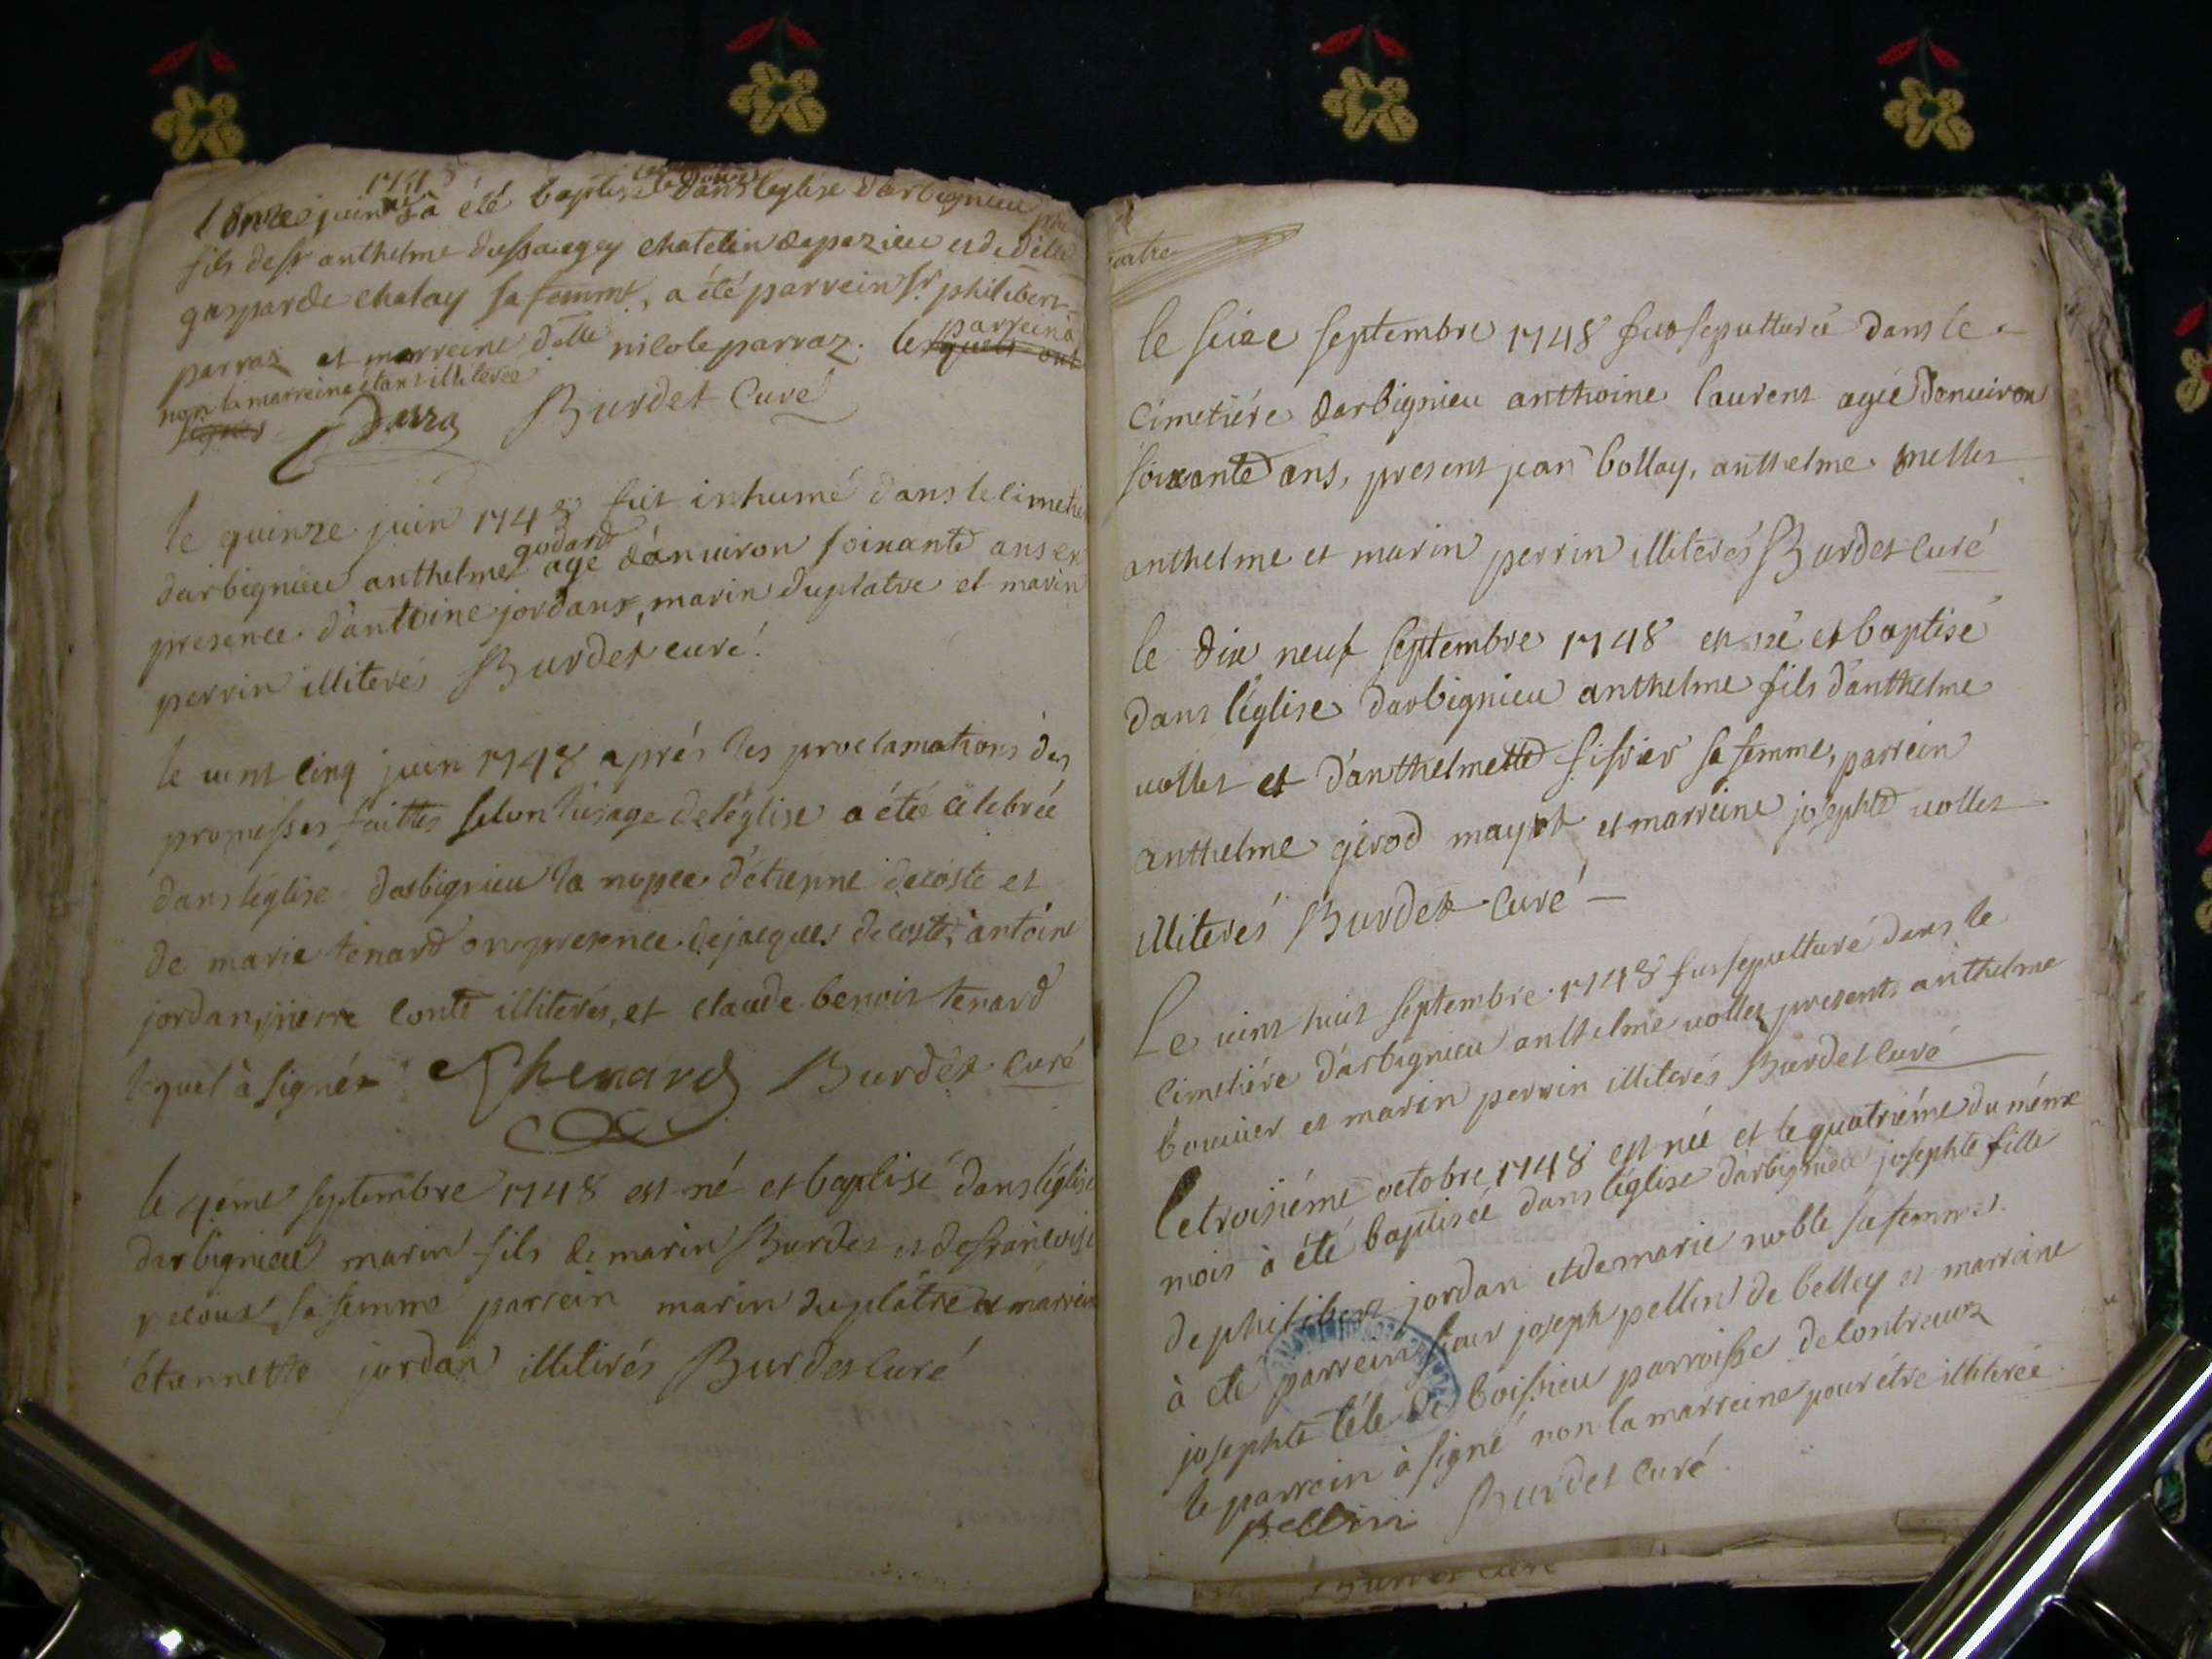 1748
l'onze juin a été baptisé dans léglise darbignieu
fils de sr anthelme dussaugey chatelin de pazieu et de delle
gasparde chalay sa femme, a été parrein sr philibert
parraz et marreine delle nicole parraz. le parrein a
non la marreine étant illiterée
Parra Burdet Curé
le quinze juin 1748 fut inhumé dans le cimetie
darbignieu anthelme godard agé d'anuiron soixante ans en
presence d'antoine jordan, marin duplatre et marin
perrin illiterés Burdet curé.
le uint cinq juin 1748 aprés les proclamations des
promesses faittes selon l'usage de léglise a été célebrée
dans léglise darbignieu la nopce d'étienne decoste et
de marie tenard en presence de jacques decoste, antoine
jordan, pierre conte illiterés, et claude benoit tenard
lequel à signé Thenard Burdet Curé
le 4éme septembre 1748 est né et baptisé dans léglise
darbignieu marin fils de marin Burdet et de francoise
sa femme parrein marin duplâtre et marrein
étiennette jordan illiterés Burdet Curé
le seize septembre 1748 fut sepulturé dans le
cimetiére darbignieu anthoine laurent agé d'anuiron
soixante ans, present jean bollay, anthelme mellet
anthelme et marin perrin illiterés Burdet curé
le dix neuf septembre 1748 est né et baptisé
dans léglise darbignieu anthelme fils d'anthelme
uollet et d'anthelmette fissier sa femme, parrein
anthelme girod et marreine josephte uollet
illiterés Burdet Curé
Le uint huit septembre 1748 fut sepulturé dans le
cimetiére d'arbignieu anthelme uollet present anthelme
bouuier et marin perrin illiterés Burdet Curé
le troisiéme octobre 1748 est née et le quatriéme du méme
mois à été baptisée dans léglise d'arbignieu josephte fille
de philibert jordan et de marie noble sa femme.
à été parrein sieur joseph pellin de belley et marreine
josephte téle de boissieu parroisse de contreuoz
le parrein à signé non la marreine pour étre illiterée.
pellin Burdet Curé